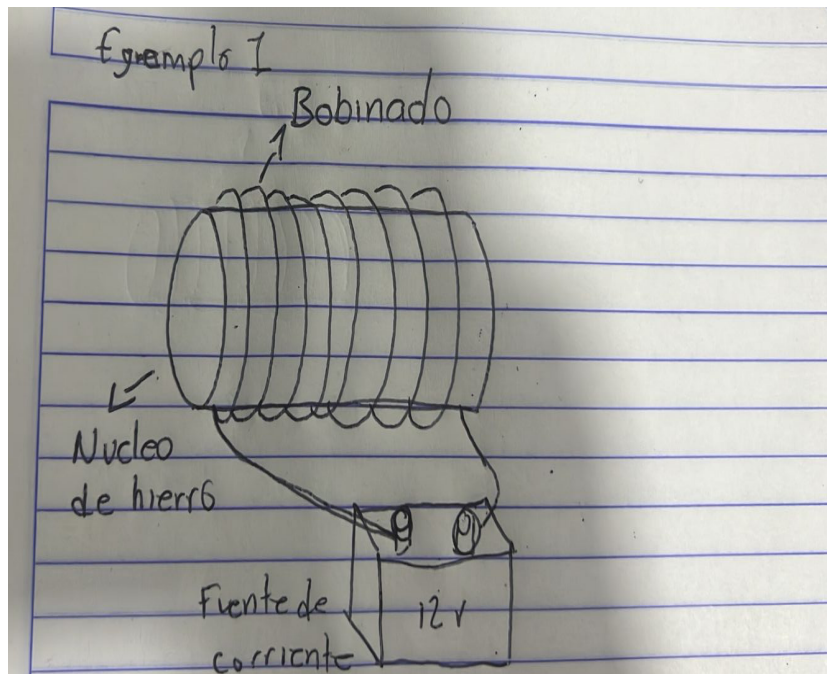 Egemplo 1
Bobinado
Nucleo
de hierro
Fuente de
corriente
12 v